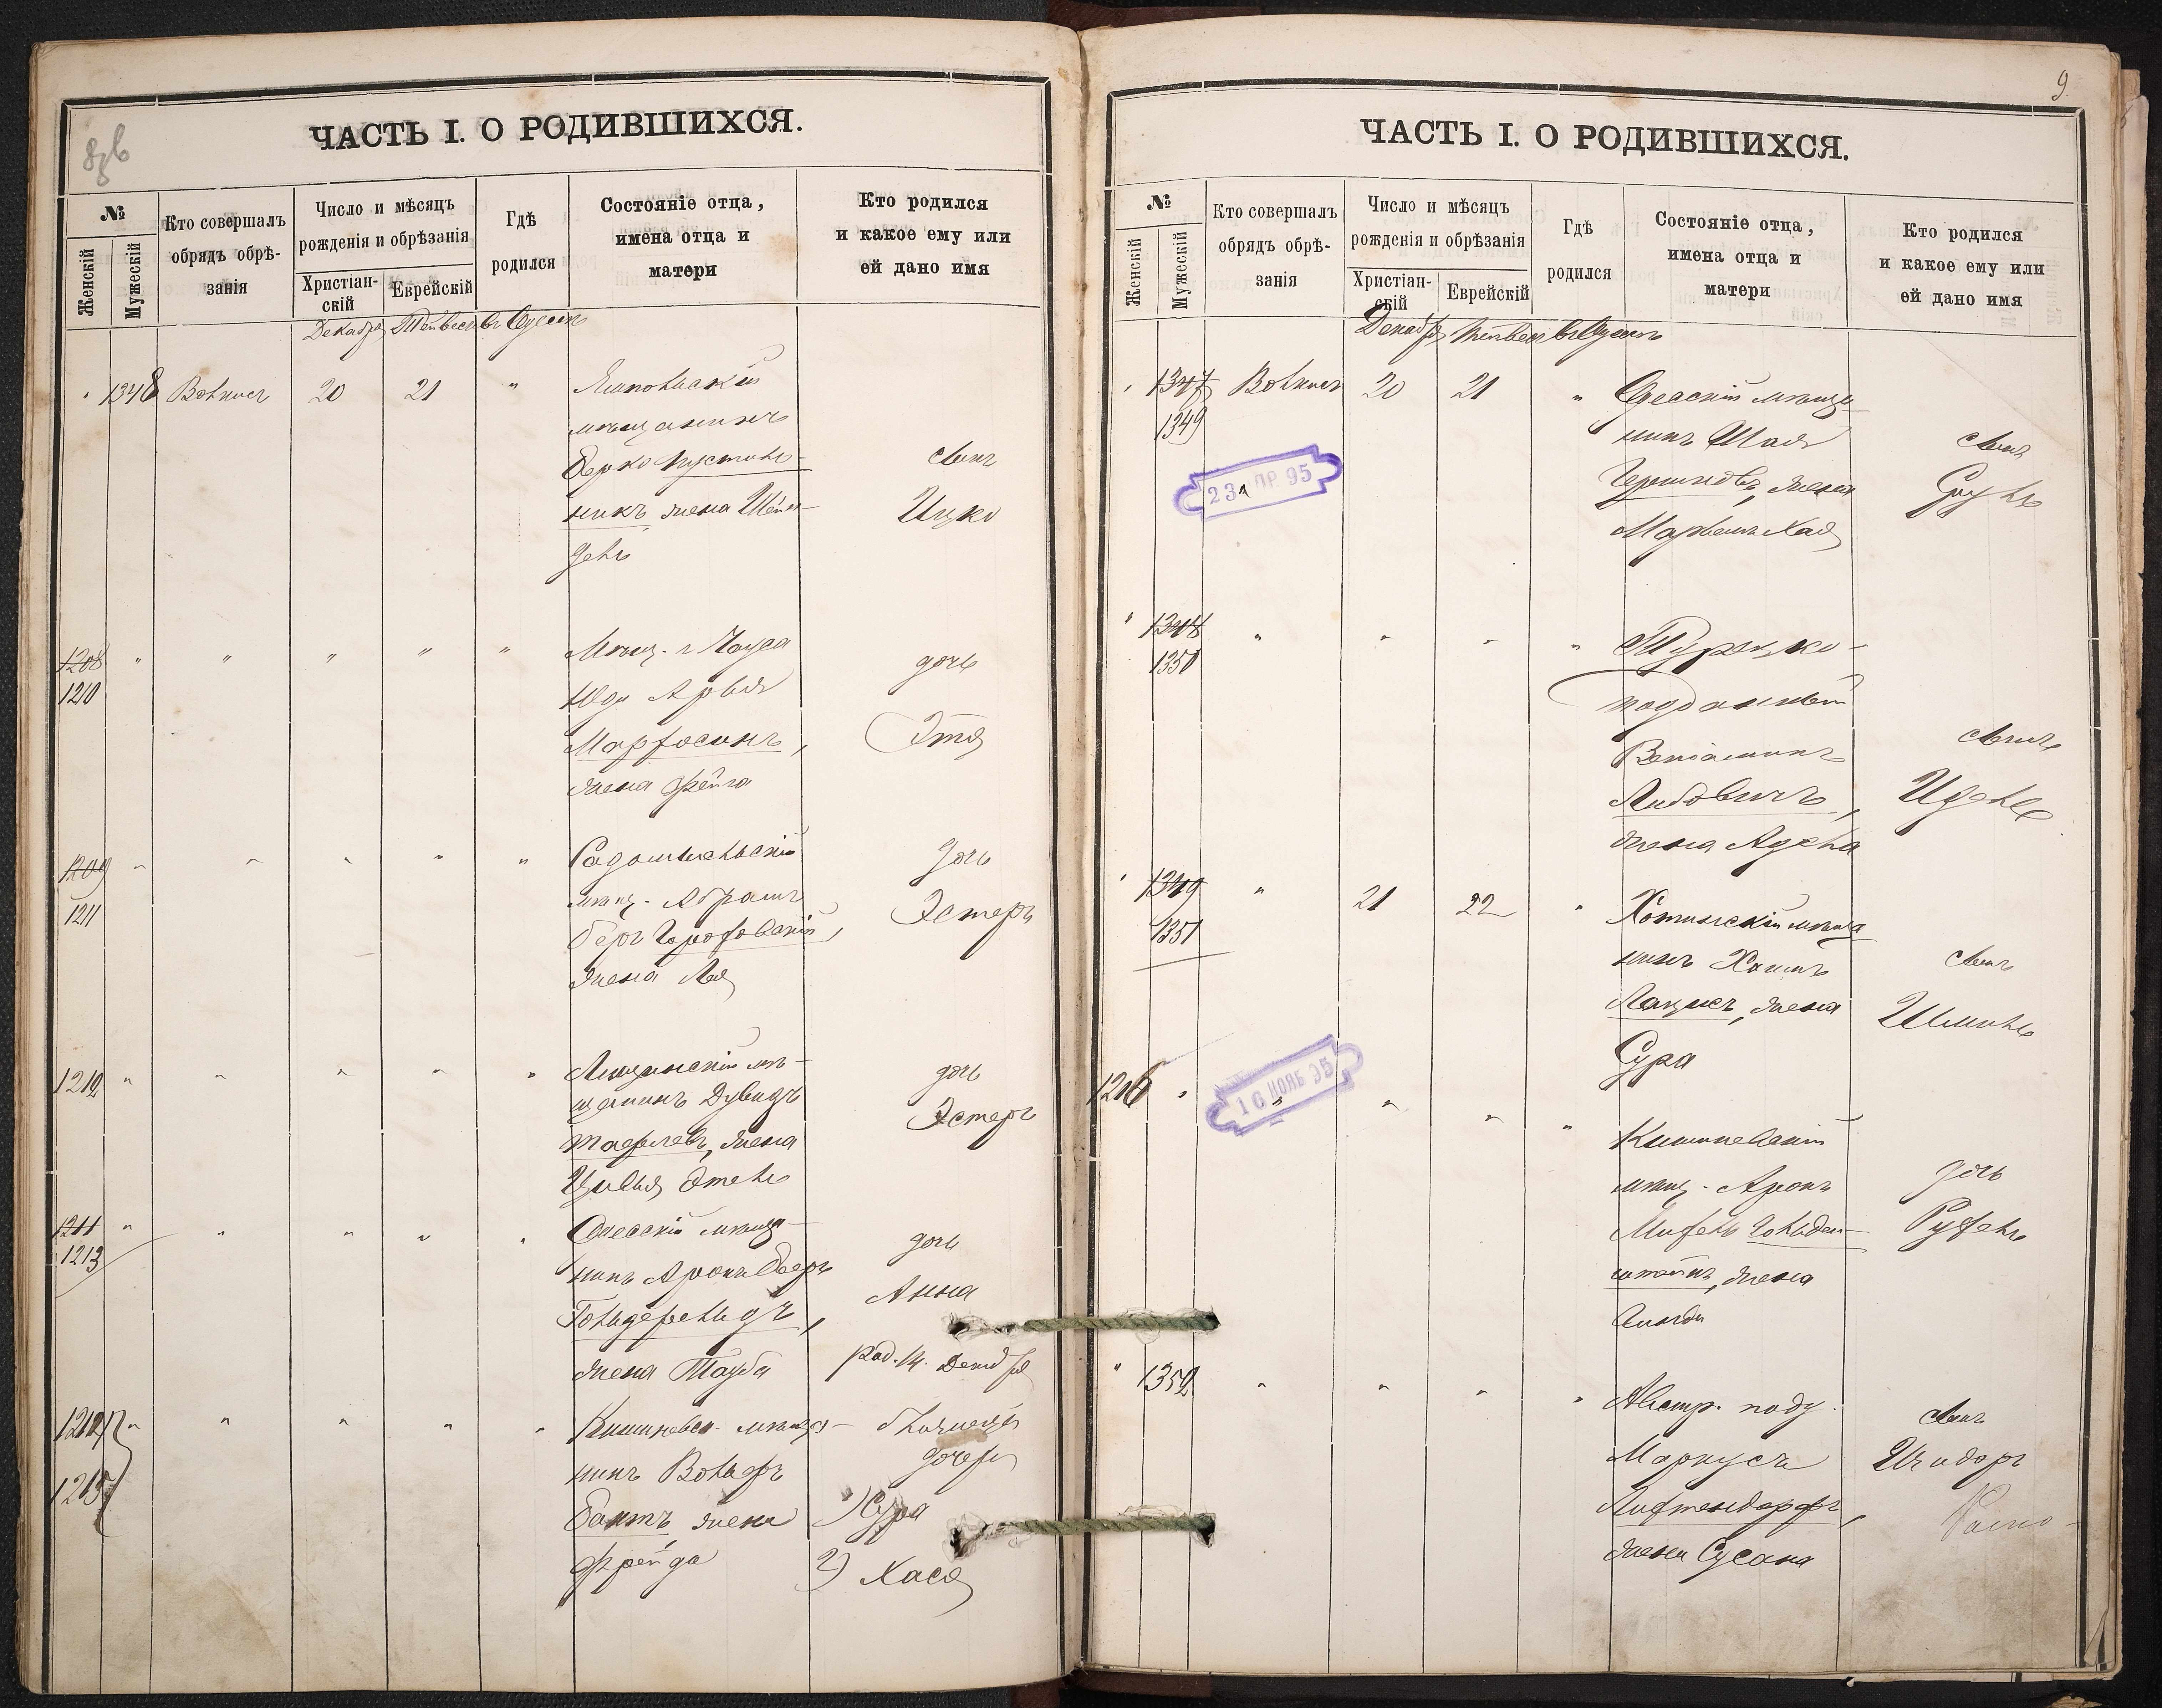 8зв
ЧАСТЬ I. О РОДИВШИХСЯ.
№
Женскій
Мужескій
Кто совершалъ
обрядъ обрѣ-
занія
Число и мѣсяцъ
рожденія и обрѣзанія
Христіан-
скій
Еврейскій
Гдѣ
родился
Состояніе отца,
имена отца и
матери
Кто родился
и какое ему или
ей дано имя
Декабря Тейвесъ въ Одессѣ
" 1348 Вольнисъ 20 21 "
мѣщанинъ
Берко Пустиль-
никъ, жена Шейн-
дель
сынъ
Ицко
1208 " " " " "
1210
Мѣщ. г.
Марфосинъ,
жена Фейга
дочь
Этя
1209 " " " " "
1211
Радомысльскій
мѣщ. Абрамъ
Беръ Городовскій,
жена Лея
дочь
Эстеръ
1212 " " " " "
мѣ-
щанинъ Дувидъ
Тафлевъ, жена
Цивья Этель
дочь
Эстеръ
1211 " " " " "
1213
Одесскій мѣща-
нинъ Аронъ Беръ
Гольдфельдъ,
жена Тауба
дочь
Анна
род. 14. Декабря
1214 " " " " "
1215
Кишиневск. мѣща-
нинъ Вольфъ
Бантъ, жена
Фрейда
близнецы
дочери
1) Сура
2) Хася
9.
ЧАСТЬ I. О РОДИВШИХСЯ.
№
Женскій
Мужескій
Кто совершалъ
обрядъ обрѣ-
занія
Число и мѣсяцъ
рожденія и обрѣзанія
Христіан-
скій
Еврейскій
Гдѣ
родился
Состояніе отца,
имена отца и
матери
Кто родился
и какое ему или
ей дано имя
Декабря Тейвесъ въ Одессѣ
" 1347 Вольнисъ 20 21 "
1349
23 АПР 95
Одесскій мѣща-
нинъ Шая
жена
Хая
сынъ
Сруль
" 1348 " " " "
1350
Турецко-
подданный
Веніаминъ
Либовичъ,
жена Адель
сынъ
Идель
" 1349 " 21 22 "
1351
Хотинскій мѣща
нинъ Хаимъ
Ланцисъ, жена
Сура
сынъ
Шмиль
1216 " " " " "
16 НОЯБ 95
Кишиневскій
мѣщ. Аронъ
Мифель Гольден-
штейнъ, жена
Гинди
дочь
Рухель
" 1352 " " " "
Австр. подд.
Маркусъ
Лифтендорфъ,
жена Сусана
сынъ
Изидоръ